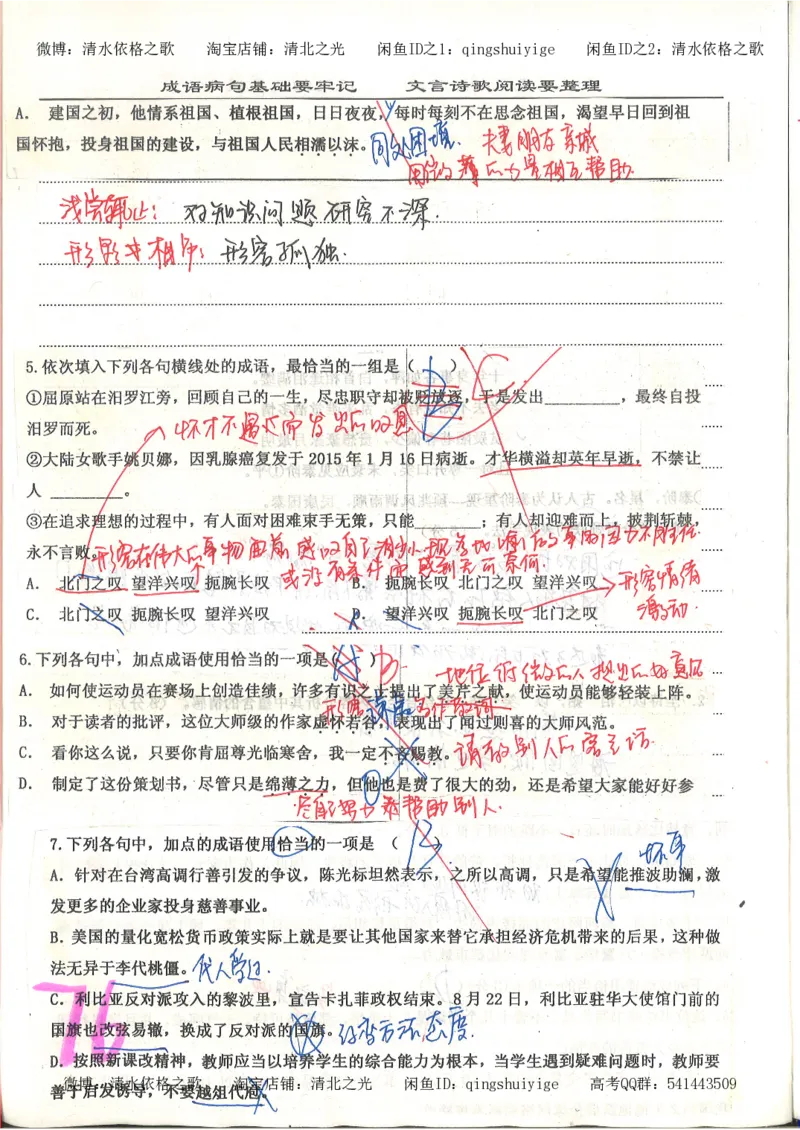 微博：清水依格之歌 淘宝店铺：清北之光 闲鱼ID之1：qingshuiyige 闲鱼ID之2：清水依格之歌
成语病句基础要牢记 文言诗歌阅读要整理
A． 建国之初，他情系祖国、植根祖国，日日夜夜，每时每刻不在思念祖国，渴望早日回到祖
国怀抱，投身祖国的建设，与祖国人民相濡以沫。 同处困境. 夫妻朋友亲戚
用微薄的力量相互帮助.
浅尝辄止：对知识问题研究不深.
形影相吊：形容孤独.
5.依次填入下列各句横线处的成语，最恰当的一组是（ ）
①屈原站在汨罗江旁，回顾自己的一生，尽忠职守却被贬放逐，于是发出________，最终自投
汨罗而死。 怀才不遇而发出的
②大陆女歌手姚贝娜，因乳腺癌复发于 2015 年 1 月 16 日病逝。才华横溢却英年早逝，不禁让
人 ________。
③在追求理想的过程中，有人面对困难束手无策，只能________；有人却迎难而上，披荆斩棘，
永不言败。 形容在伟大事物面前感叹自己渺小
或没有条件而感到无可奈何.
A． 北门之叹 望洋兴叹 扼腕长叹 B． 扼腕长叹 北门之叹 望洋兴叹 形容情绪
C． 北门之叹 扼腕长叹 望洋兴叹 D． 望洋兴叹 扼腕长叹 北门之叹 激动.
6.下列各句中，加点成语使用恰当的一项是（ ） D 地位低微的人提出的意见
A． 如何使运动员在赛场上创造佳绩，许多有识之士提出了美芹之献，使运动员能够轻装上阵。
形容
B． 对于读者的批评，这位大师级的作家虚怀若谷，表现出了闻过则喜的大师风范。
C． 看你这么说，只要你肯屈尊光临寒舍，我一定不吝赐教。 请教别人的客气话.
D． 制定了这份策划书，尽管只是绵薄之力，但他也是费了很大的劲，还是希望大家能好好参
帮助别人.
7.下列各句中，加点的成语使用恰当的一项是 （ B ）
坏事
A．针对在台湾高调行善引发的争议，陈光标坦然表示，之所以高调，只是希望能推波助澜，激
发更多的企业家投身慈善事业。
B．美国的量化宽松货币政策实际上就是要让其他国家来替它承担经济危机带来的后果，这种做
法无异于李代桃僵。 代人受过.
C．利比亚反对派攻入的黎波里，宣告卡扎菲政权结束。8 月 22 日，利比亚驻华大使馆门前的
国旗也改弦易辙，换成了反对派的国旗。 改变方法,态度.
76
D．按照新课改精神，教师应当以培养学生的综合能力为根本，当学生遇到疑难问题时，教师要
善于启发诱导，不要越俎代庖。
微博：清水依格之歌 淘宝店铺：清北之光 闲鱼ID：qingshuiyige 高考QQ群：541443509